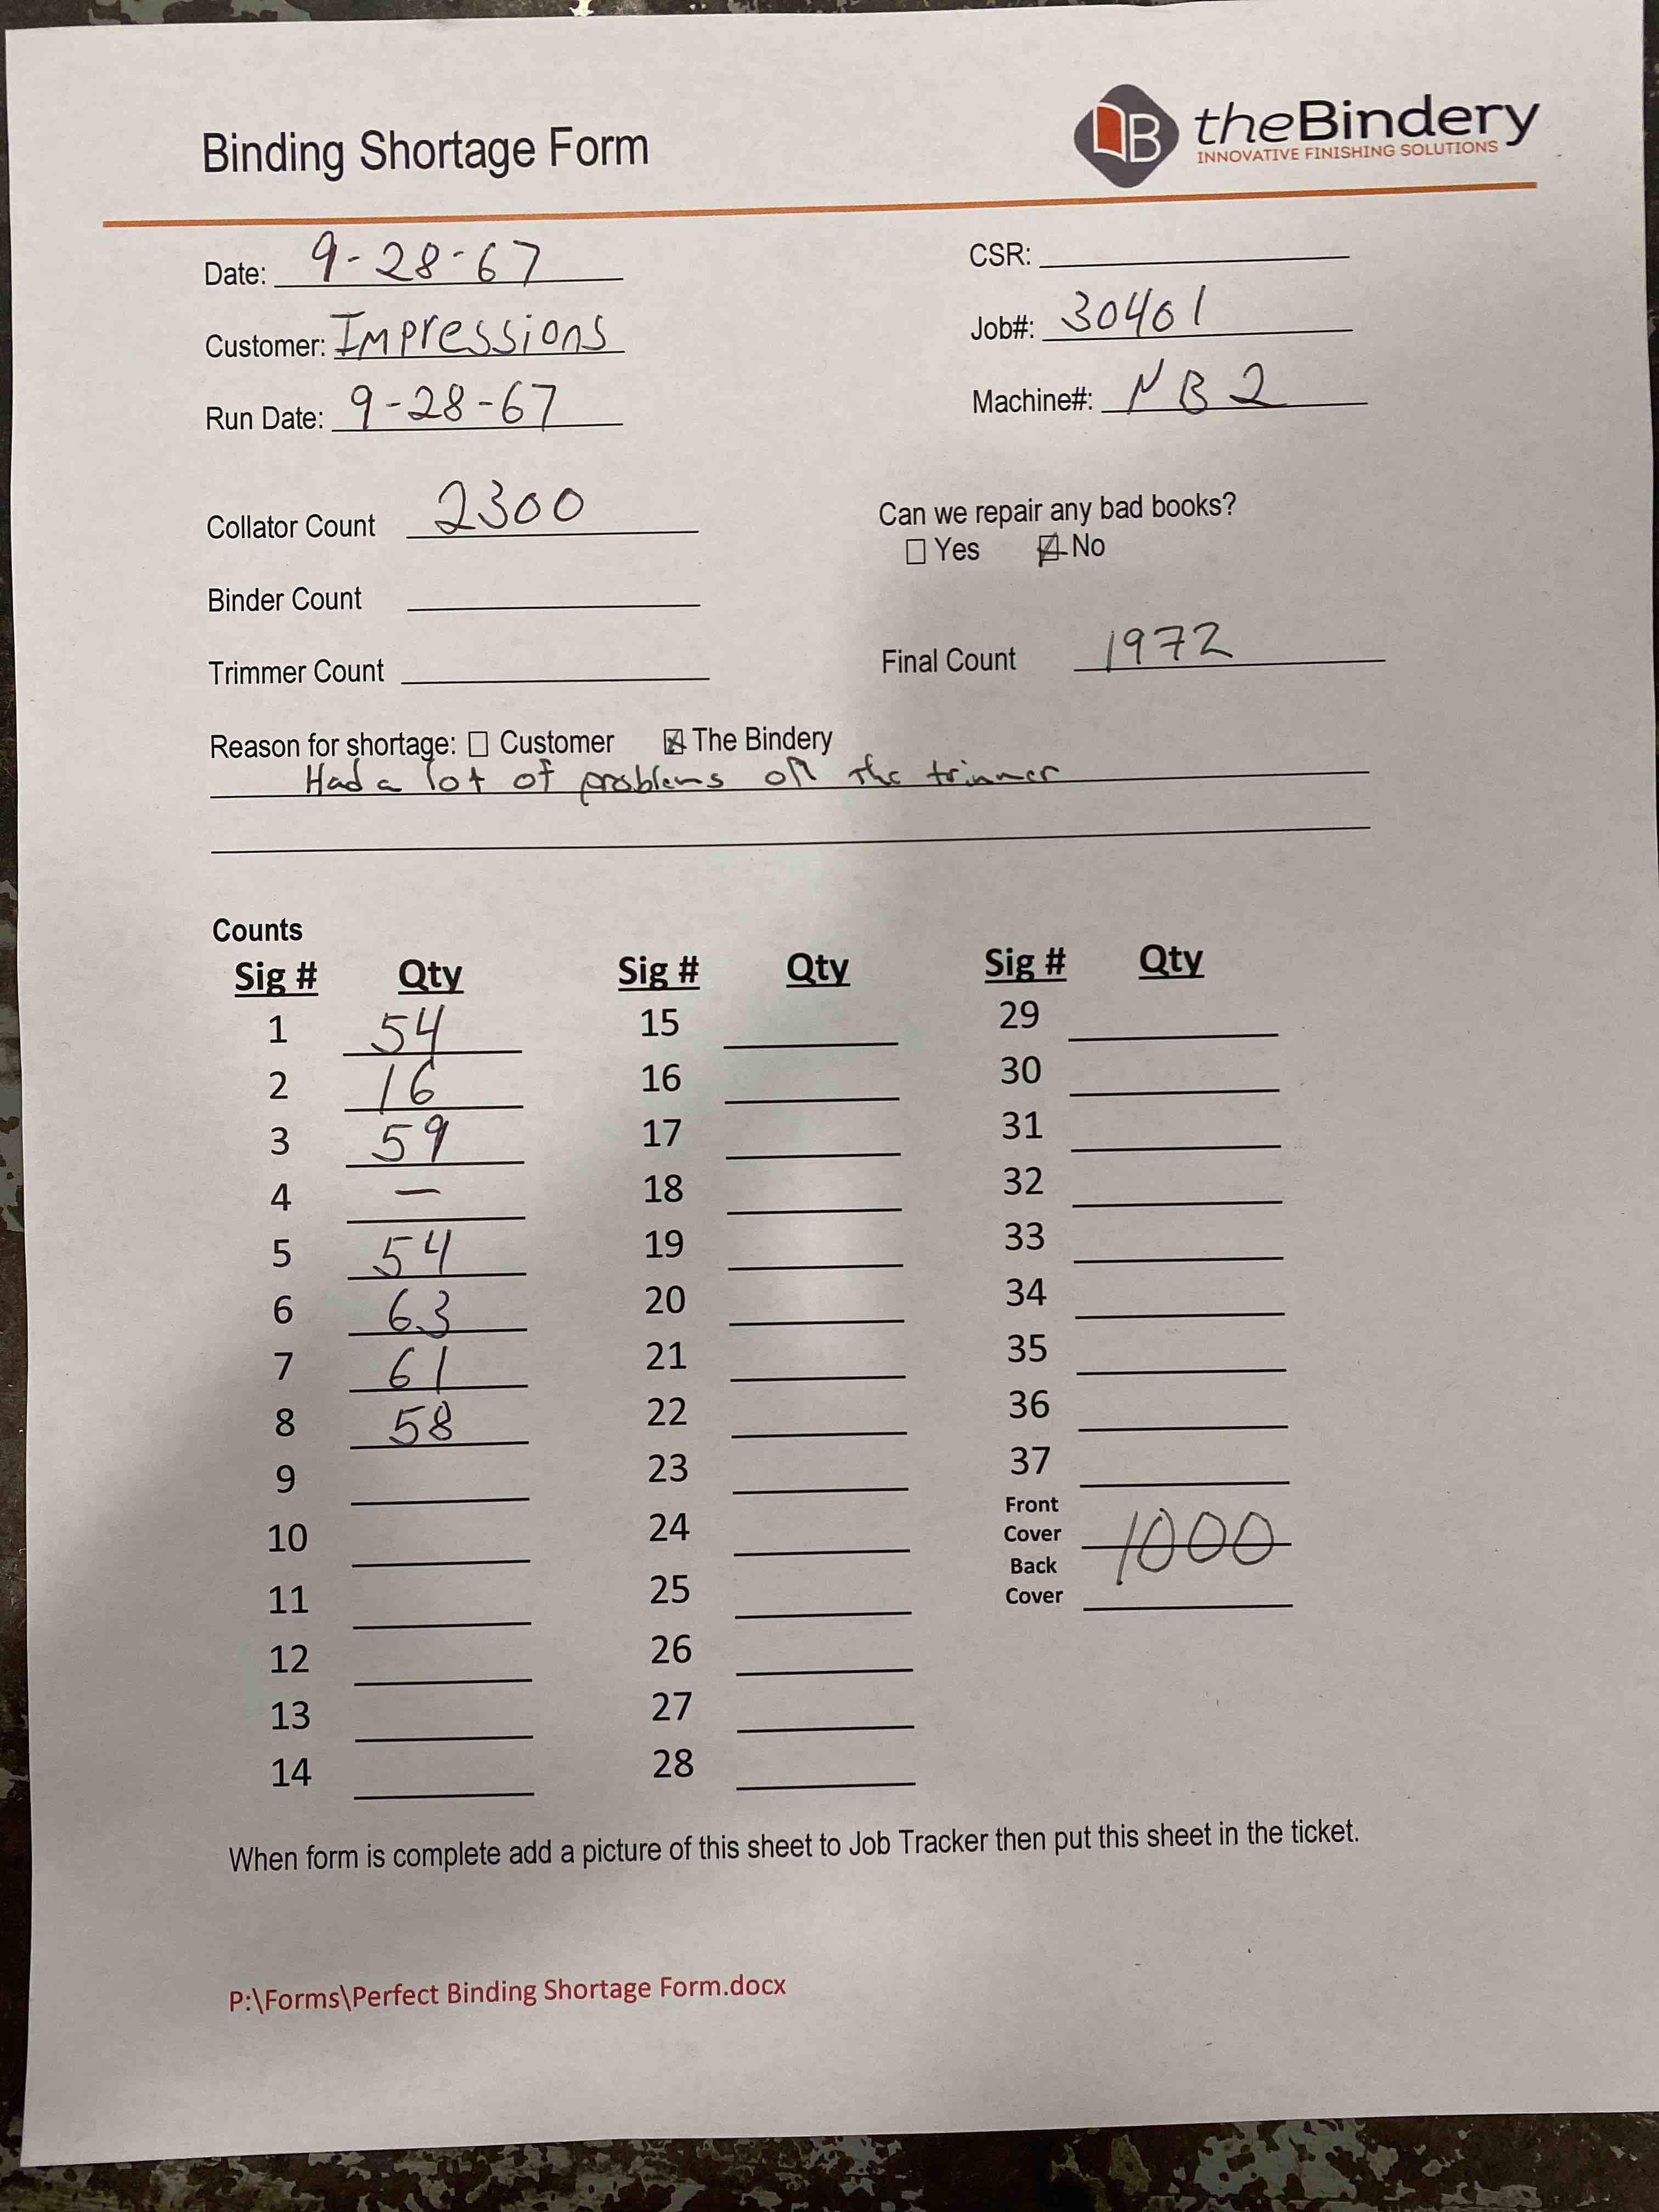 Binding Shortage Form
B theBindery
INNOVATIVE FINISHING SOLUTIONS
Date: 9-28-67
CSR:
Customer: Impressions
Job#: 30401
Run Date: 9-28-67
Machine#: NB2
Collator Count 2300
Can we repair any bad books?
Yes No
Binder Count
Trimmer Count
Final Count 1972
Reason for shortage: Customer The Bindery
Had a lot of problems off the trimmer
Counts
Sig # Qty Sig # Qty Sig # Qty
1 54 15 29
2 16 16 30
3 59 17 31
4 — 18 32
5 54 19 33
6 63 20 34
7 61 21 35
8 58 22 36
9 23 37
10 24 Front Cover 1000
11 25 Back Cover
12 26
13 27
14 28
When form is complete add a picture of this sheet to Job Tracker then put this sheet in the ticket.
P:\Forms\Perfect Binding Shortage Form.docx